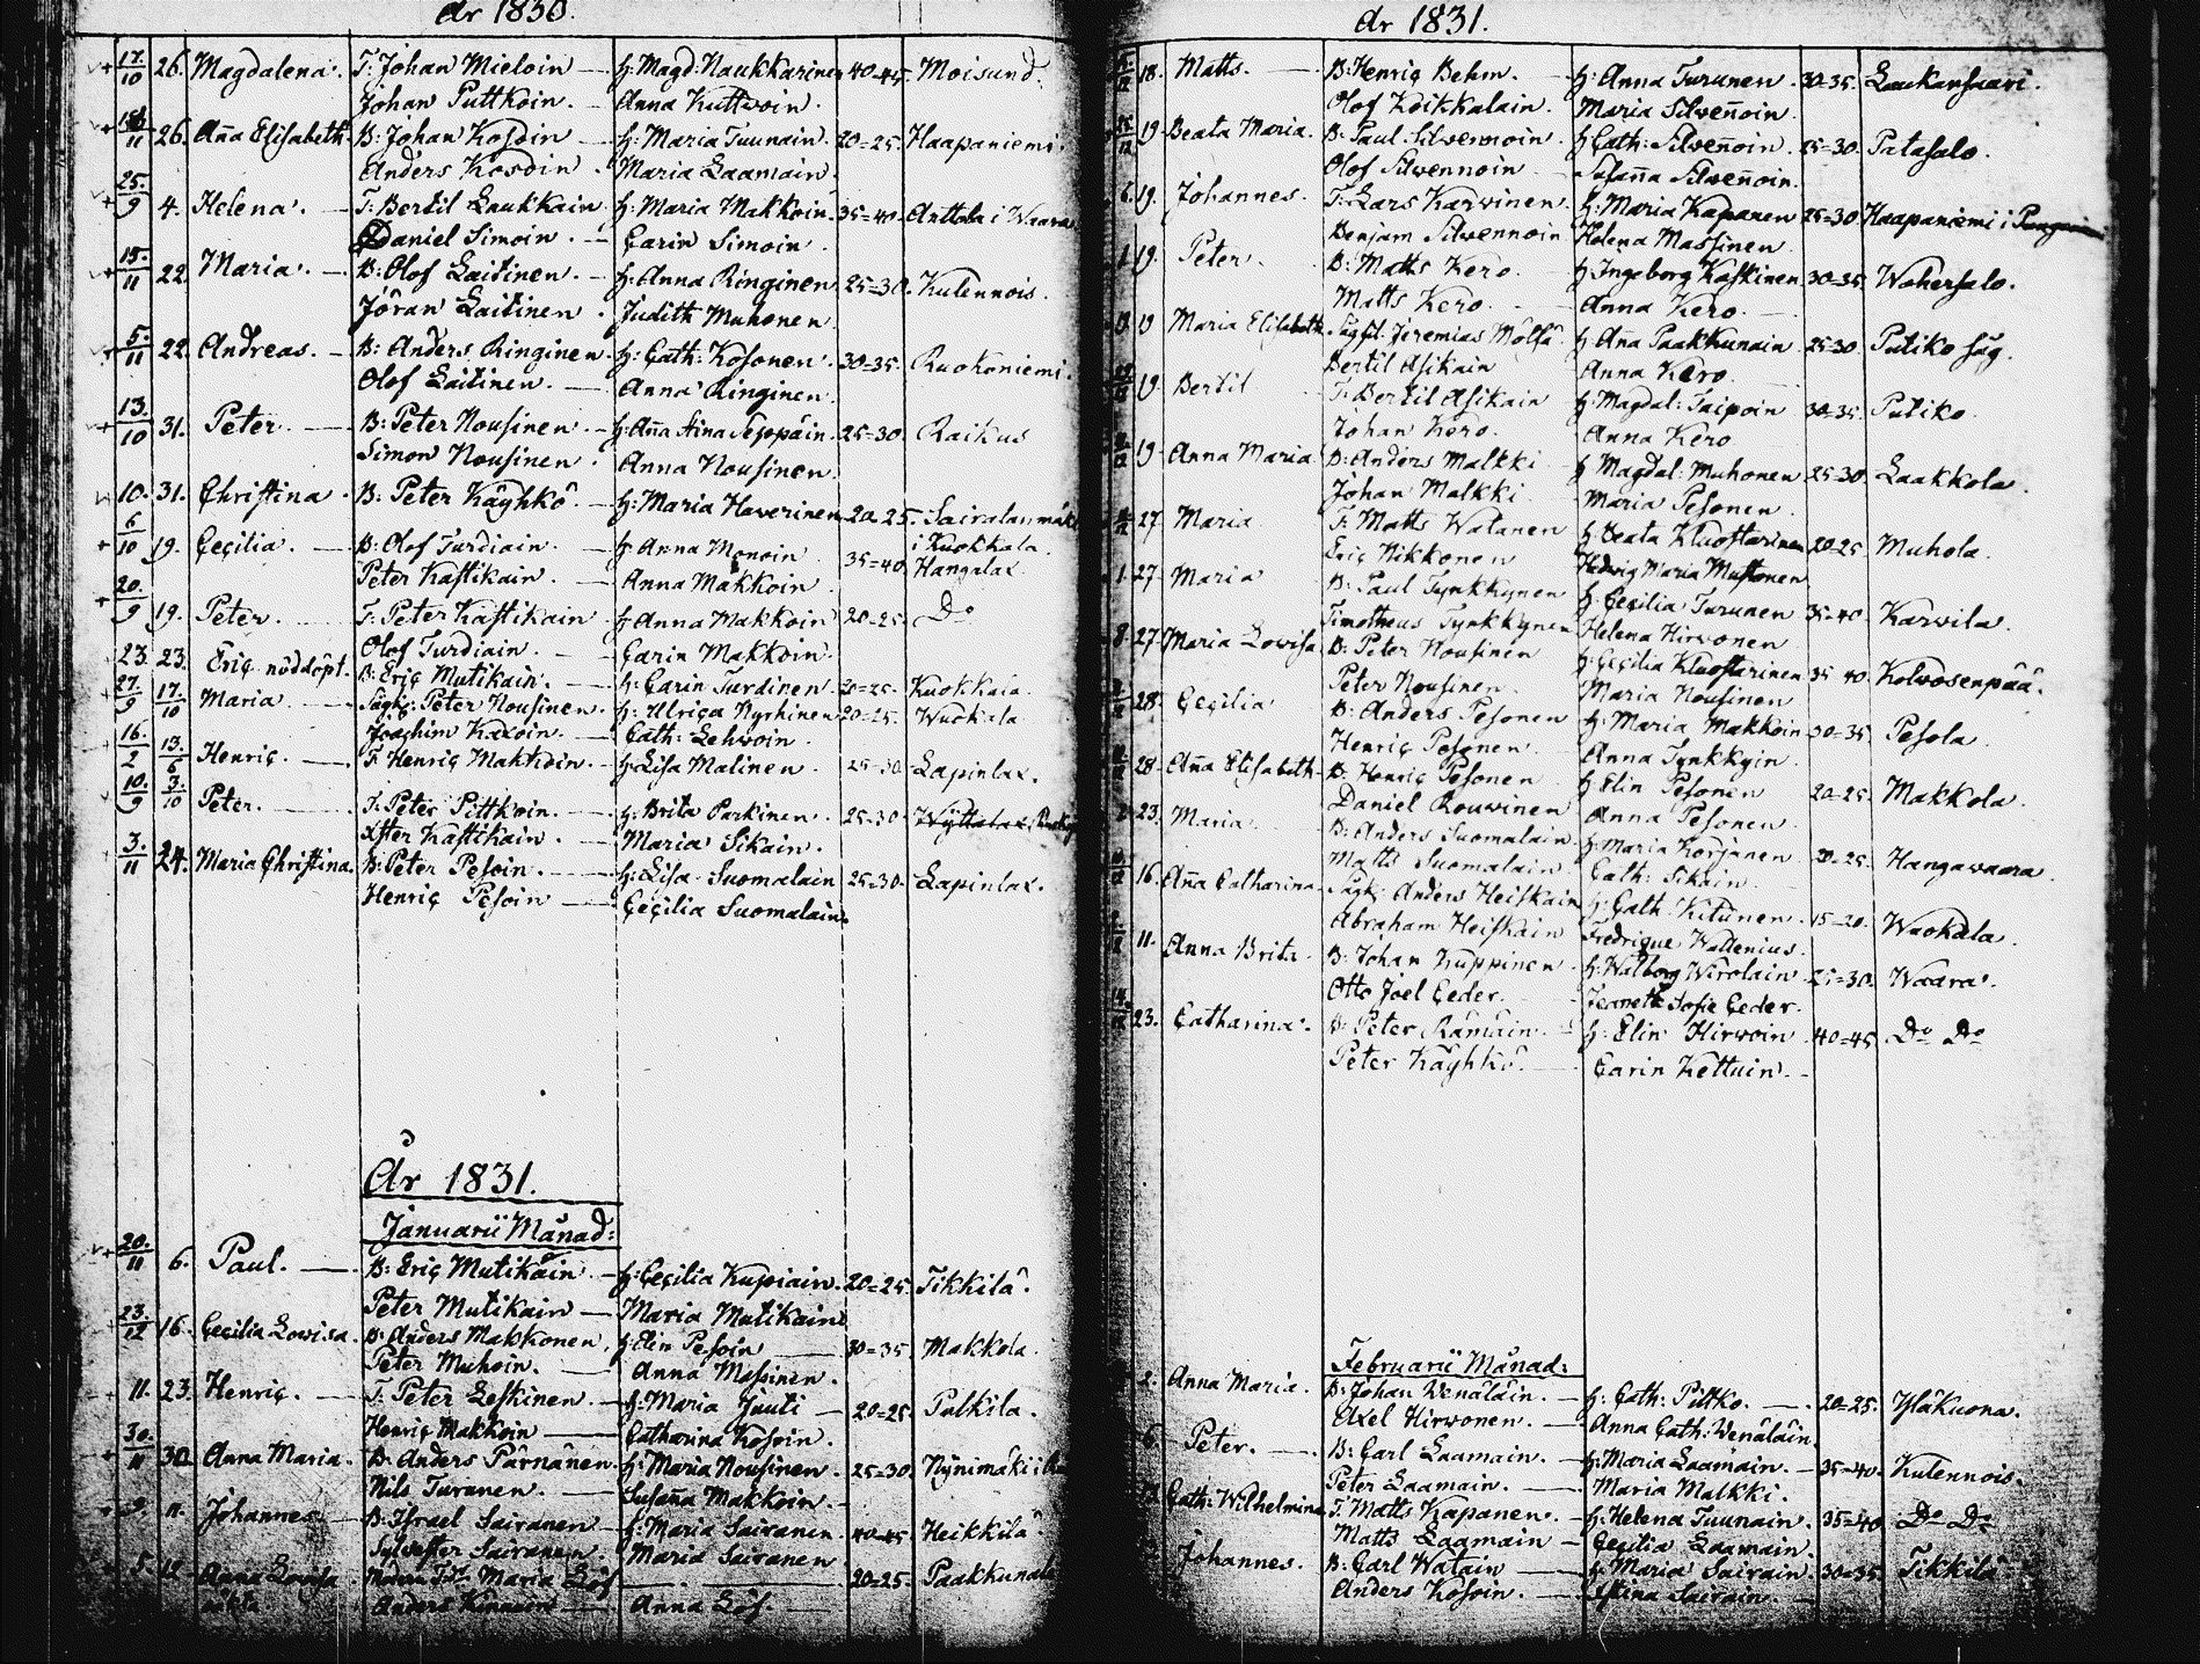 År 1830.
17/10 26. Magdalena. T: Johan Mieloin — H: Magd: Naukkarinen 40=45. Moisund.
Johan Puttkoin. — Anna Kuttwoin.
11 26. Aña Elisabeth B: Johan Kosoin — H: Maria Tuunain. 20=25. Haapaniemi.
Anders Kosoin. Maria Laamain.
25./9 4. Helena. — T: Bertil Laukkain. H: Maria Makkoin. 35=40. Anttola i Waara
Daniel Simoin. — Carin Simoin.
15./11 22. Maria. — B: Olof Laitinen. — H: Anna Ringinen. 25=30. Kulennois.
Jöran Laitinen. Judith Muhonen
5./11 22. Andreas. — B: Anders Ringinen. H: Cath: Kosonen. 30=35. Ruokoniemi.
Olof Laitinen. — Anna Ringinen.
13./10 31. Peter. — B: Peter Nousinen. — H: Aña Stina Seppäin. 25=30. Raikus
Simon Nousinen. Anna Nousinen.
10. 31. Christina. B: Peter Käyhkö. — H: Maria Haverinen 20=25. Sairalanmäki
i Kuokkala.
6/10 19. Cecilia. — B: Olof Turdiain. — H: Anna Monoin 35=40 Hangalax
Peter Kastikain. — Anna Makkoin
20./9 19. Peter. — T: Peter Kastikain H: Anna Makkoin 20=25. Do
Olof Turdiain. — Carin Makkoin.
23. 23. Eric nöddöpt. B: Eric Mutikain. — H: Carin Turdinen. 20=25. Kuokkala.
27./9 17./10 Maria. — Sågk: Peter Nousinen. H: Ulrica Nyrhinen 20=25. Wuokala
Joachim Kaxoin. — Cath: Lehwoin.
16./2 13./6 Henric. — T: Henric Makkoin. — H: Lisa Malinen. 25=30 Lapinlax.
10./9 3./10 Peter. — T: Peter Pittkoin. — H: Brita Parkinen. 25=30.
Xster Kastikain. — Maria Sikain.
3./11 24. Maria Christina. B: Peter Pesoin. — H: Lisa Suomalain 25=30. Lapinlax.
Henric Pesoin — Cecilia Suomalain.
År 1831.
Januarii Månad:
20./11 6. Paul. — B: Eric Mutikain — H: Cecilia Kupiain. 20=25. Tikkilä.
Peter Mutikain — Maria Mutikain
23./12 16. Cecilia Lowisa. B: Anders Makkonen. H: Elin Pesoin — 30=35. Makkola.
Peter Muhoin. — Anna Massinen.
11. 23. Henric. — T: Peter Leskinen. — H: Maria Juuti — 20=25. Pulkila.
Henric Makkoin — Catharina Kosoin.
30./11 30. Anna Maria. B: Anders Pärnänen. H: Maria Nousinen. 25=30. Nynimäki i
Nils Turunen. — Susaña Makkoin. —
9. Johannes — B: Israel Sairanen — H: Maria Sairanen. 40=45 Heikkilä
Sylvester Sairanen. Maria Sairanen
5. 12 Anna Lowisa Maria Löf — 20=25. Paakkunala
oäkta Anders Kinnain — Anna Löf. —
År 1831.
18. Matts. — B: Henric Behm. — H: Anna Turunen. 30=35. Laukansaari.
Olof Koikkalain. Maria Silweñoin.
19 Beata Maria. B: Paul Silwennoin. H: Cath: Silweñoin. 25=30. Patasalo.
Olof Silwennoin — Susaña Silweñoin.
6. 19. Johannes. T: Lars Karwinen. H: Maria Kapanen 25=30 Haapaniemi i
Benjam Silwennoin Helena Massinen.
1. 19. Peter. B: Matts Kero. H: Ingeborg Kastinen 30=35. Wohersalo.
Matts Kero. — Anna Kero. —
19 Maria Elisabeth. Jeremias Mölsä. H: Aña Paakkunain 25=30. Putiko såg.
Bertil Asikain Anna Kero.
19. Bertil T: Bertil Asikain H: Magdal: Taipoin 30=35. Putiko
Johan Kero. Anna Kero
19. Anna Maria. B: Anders Malkki H: Magdal: Muhonen 25=30. Laakkola.
Johan Malkki. Maria Pesonen.
27. Maria T: Matts Watanen H: Beata Kluostarinen 20=25 Muhola.
Eric Nikkonen Hedvig Maria Mustonen
1. 27. Maria B: Paul Tynkkynen H: Cecilia Turunen 35=40 Karvila.
Timotheus Tynkkynen Helena Hirwonen
8. 27. Maria Lowisa B: Peter Nousinen H: Cecilia Kluostarinen 35 40. Kolwosenpää.
Peter Nousinen. Maria Nousinen
28. Cecilia B: Anders Pesonen H: Maria Makkoin 30=35 Pesola.
Henric Pesonen. Anna Tynkkyin
28. Aña Elisabeth B: Henric Pesonen H: Elin Pesonen 20=25. Makkola.
Daniel Rouwinen Anna Pesonen
23. Maria. B: Anders Suomalain H: Maria Korjanen 20=25. Hangawaara.
Matts Suomalain Cath: Sikain.
16. Aña Catharina. Sågk: Anders Heiskain H: Cath: Kitunen. 15=20. Wuokala.
Abraham Heiskain Fredrique Wallenius.
11. Anna Brita. B: Johan Kuppinen H: Walborg Wirolain 25=30. Waara.
Otto Joel Ceder. Jeanette Sofie Ceder.
23. Catharina. B: Peter Rämäin. H: Elin Hirwoin 40=45. Do Do
Peter Käyhkö. — Carin Kettuin. -
Februarii Månad:
2. Anna Maria. B: Johan Wenäläin. — H: Cath: Pittko. — 20=25. Yläkuona.
Axel Hirwonen. — Anna Cath: Wenäläin.
6. Peter. — B: Carl Laamain. — H: Maria Laamain. — 35=40. Kulennois.
Peter Laamain. — Maria Malkki.
Cath: Wilhelmina T: Matts Kapanen. — H: Helena Tuunain. 35=40. Do Do
Matts Laamain — Cecilia Laamain.
Johannes. B: Carl Watain — H: Maria Sairain. 30=35. Tikkilä.
Anders Kosoin. — Stina Sairain.